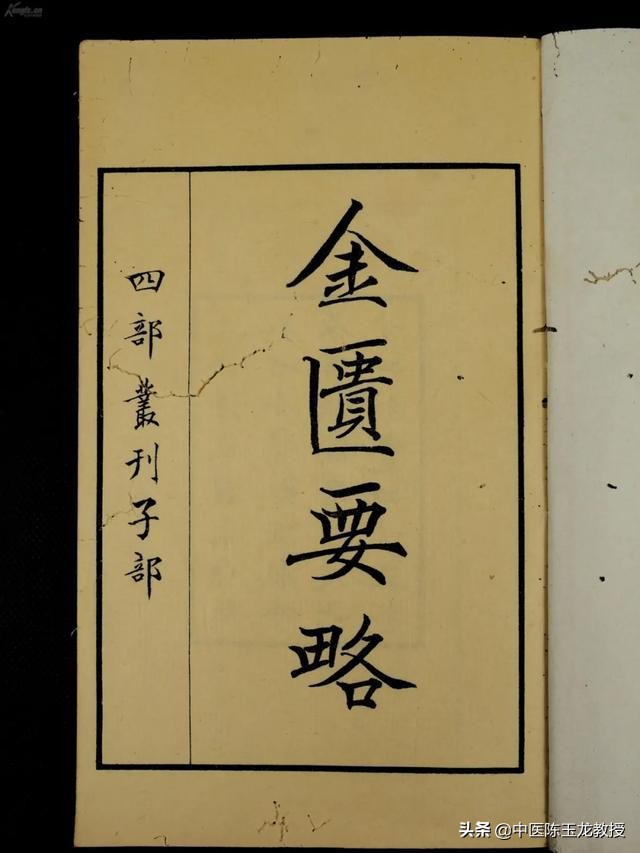 金匱要略
四部叢刊子部
Kongfz.cn
头条 @中医陈玉龙教授